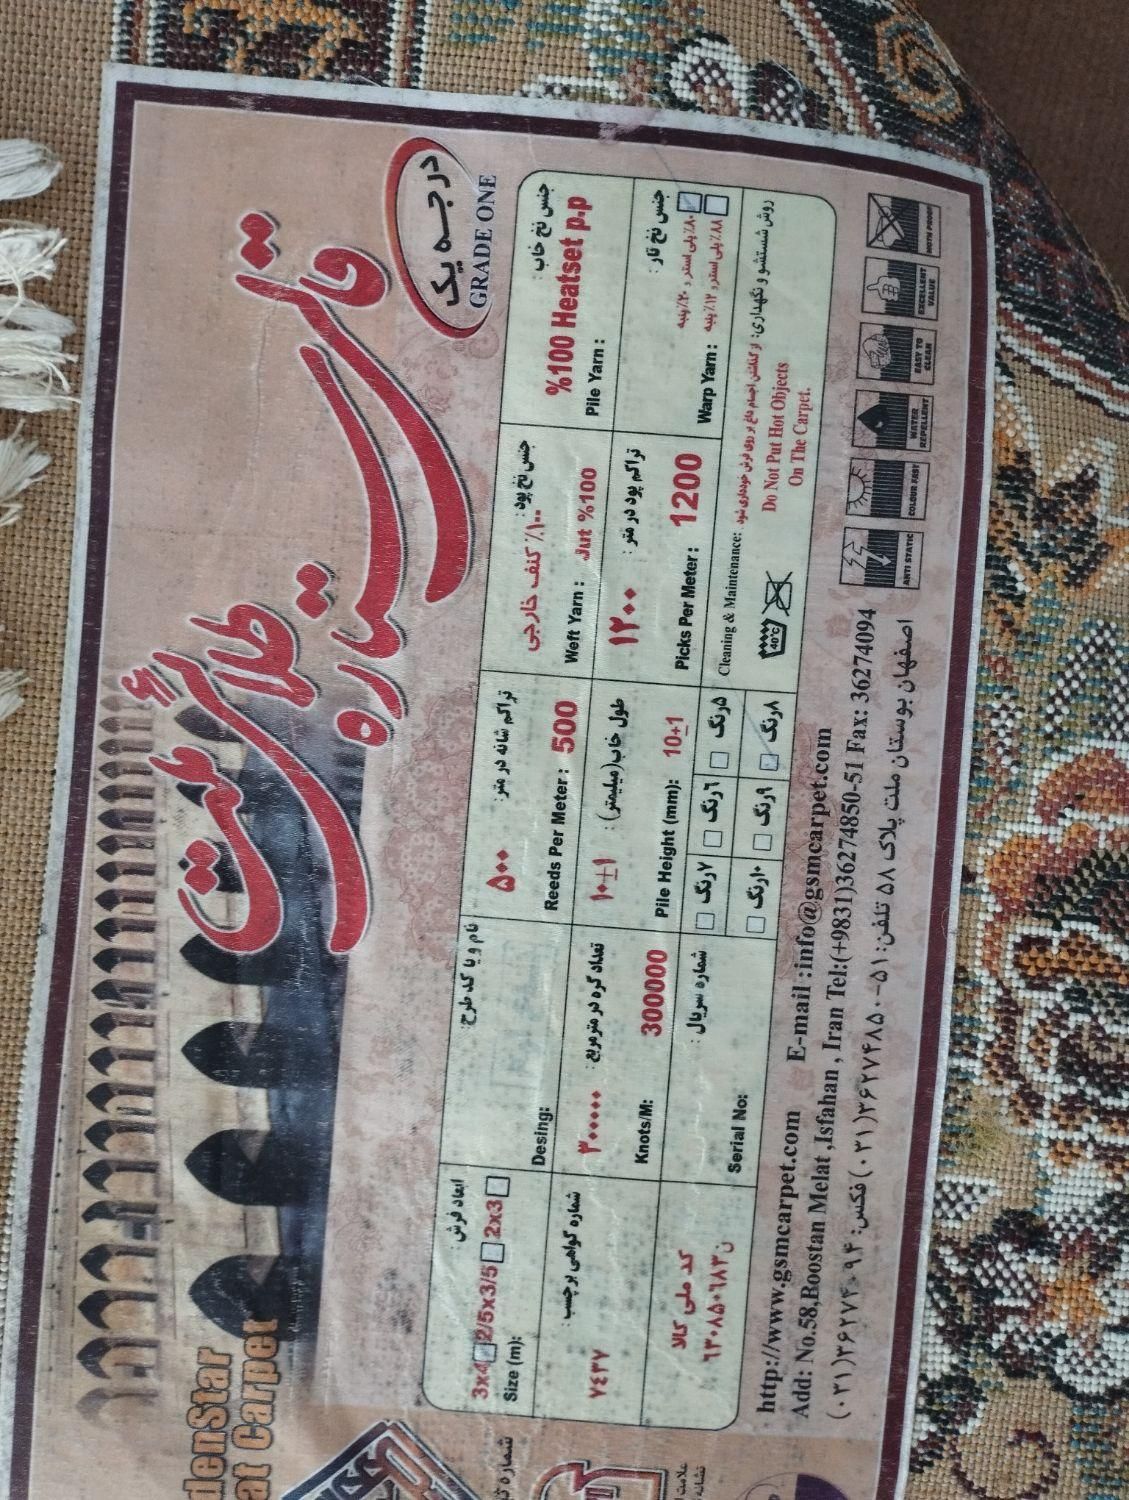 قالی ستاره
طلائی ملت
درجه یک
GRADE ONE
denStar
at Carpet
ابعاد فرش :
3x4 2/5x3/5 2x3
Size (m):
نام و یا کد طرح:
Desing:
تراکم شانه در متر:
۵۰۰
Reeds Per Meter : 500
جنس نخ پود :
۱۰۰٪ کنف خارجی
Weft Yarn : Jut %100
جنس نخ خاب :
%100 Heatset p.p
Pile Yarn :
شماره گواهی برچسب :
۷۴۳۷
تعداد گره در مترمربع:
۳۰۰۰۰۰
Knots/M: 300000
طول خاب(میلیمتر) :
۱۰±۱
Pile Height (mm): 10±1
تراکم پود در متر :
۱۲۰۰
Picks Per Meter : 1200
جنس نخ تار :
۸۰٪پلی استر و ۲۰٪پنبه
۸۸٪پلی استر و ۱۲٪پنبه
Warp Yarn :
کد ملی کالا
شماره سریال :
Serial No:
۷رنگ ۶رنگ ۵رنگ
۱۰رنگ ۹رنگ ۸رنگ
روش شستشو و نگهداری: از گذاشتن اجسام داغ بر روی فرش خودداری شود
Cleaning & Maintenance:
40°C
Do Not Put Hot Objects
On The Carpet.
ANTI STATIC
COLOUR FAST
WATER REPELLENT
EASY TO CLEAN
EXCELLENT VALUE
MOTH PROOF
http://www.gsmcarpet.com E-mail :info@gsmcarpet.com
Add: No.58,Boostan Melat ,Isfahan , Iran Tel:(+9831)36274850-51 Fax: 36274094
اصفهان بوستان ملت پلاک ۵۸ تلفن: ۵۱-۳۶۲۷۴۸۵۰(۰۳۱) فکس: ۳۶۲۷۴۰۹۴(۰۳۱)